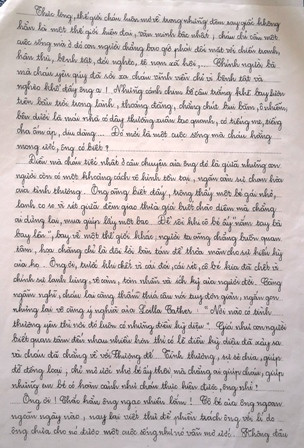 Thúc lòng, thế giới cháu luôn mơ về trong những đêm say giấc không
hẳn là một thế giới luôn đẹp, văn minh bậc nhất, cháu chỉ cần một
cuộc sống mà ở đó con người chẳng bao giờ phải đối mặt với chiến tranh,
hận thù, bệnh tật, đói nghèo, tệ nạn xã hội,... Chính người bà
mà cháu yêu quý đã rời xa cháu vĩnh viễn chỉ vì bệnh tật và
nghèo khổ đấy ông ạ! Những cánh chim bồ câu trắng khẽ bay liệng
trên bầu trời trong lành, thoáng đãng, chẳng chút bụi bặm, ô nhiễm,
bên dưới là mái nhà có đầy thương xuân bao quanh, có tiếng mẹ, tiếng
cha ấm áp, dịu dàng... Đó mới là một cuộc sống mà cháu hằng
mong ước, ông có biết?
Điều mà cháu tiếc nhất ở câu chuyện của ông đó là giữa những con
người còn có một khoảng cách vô hình tồn tại, ngăn cản sự chan hòa
của tình thương. Ông cũng biết đấy, trông thấy một bé gái nhỏ,
lạnh co ro vì rét giữa đêm giao thừa giá biết chắc diêm mà chẳng
ai dừng lại, mua giúp lấy một bao. Để rồi khi cô bé ấy "nắm tay bà
bay lên", bay về một thế giới khác, người ta cũng chẳng buồn quan
tâm, họa chăng chỉ là đôi lời bàn tán để thỏa mãn cho sự hiếu kỳ
của họ. Ông ơi, trước khi chết vì cái đói, cái rét, cô bé kia đã chết vì
chính sự lạnh lùng, vô cảm, tàn nhẫn và ích kỷ của người đời. Càng
ngẫm nghĩ, cháu lại càng thấm thía câu nói tuy đơn giản, ngắn gọn
nhưng lại vô cùng ý nghĩa của Willa Cather: "Nơi nào có tình
thương yêu thì nơi đó luôn có những điều kỳ diệu". Giá như con người
biết quan tâm đến nhau nhiều hơn thì có lẽ điều kỳ diệu đã xảy ra
và cháu đã chẳng về với Thượng đế. Tình thương, sự sẻ chia, giúp
đỡ đồng loại, chỉ mơ ước nhỏ bé ấy thôi mà chẳng ai giúp cháu, giúp
những em bé có hoàn cảnh như cháu thực hiện được, ông nhỉ!
Ông ơi! Chắc hẳn ông ngạc nhiên lắm! Cô bé của ông ngoan
ngoãn ngày nào, nay lại viết thư để phiền trách ông với lí do
ông chưa cho nó được một cuộc sống như nó vẫn mơ ước. Không đâu